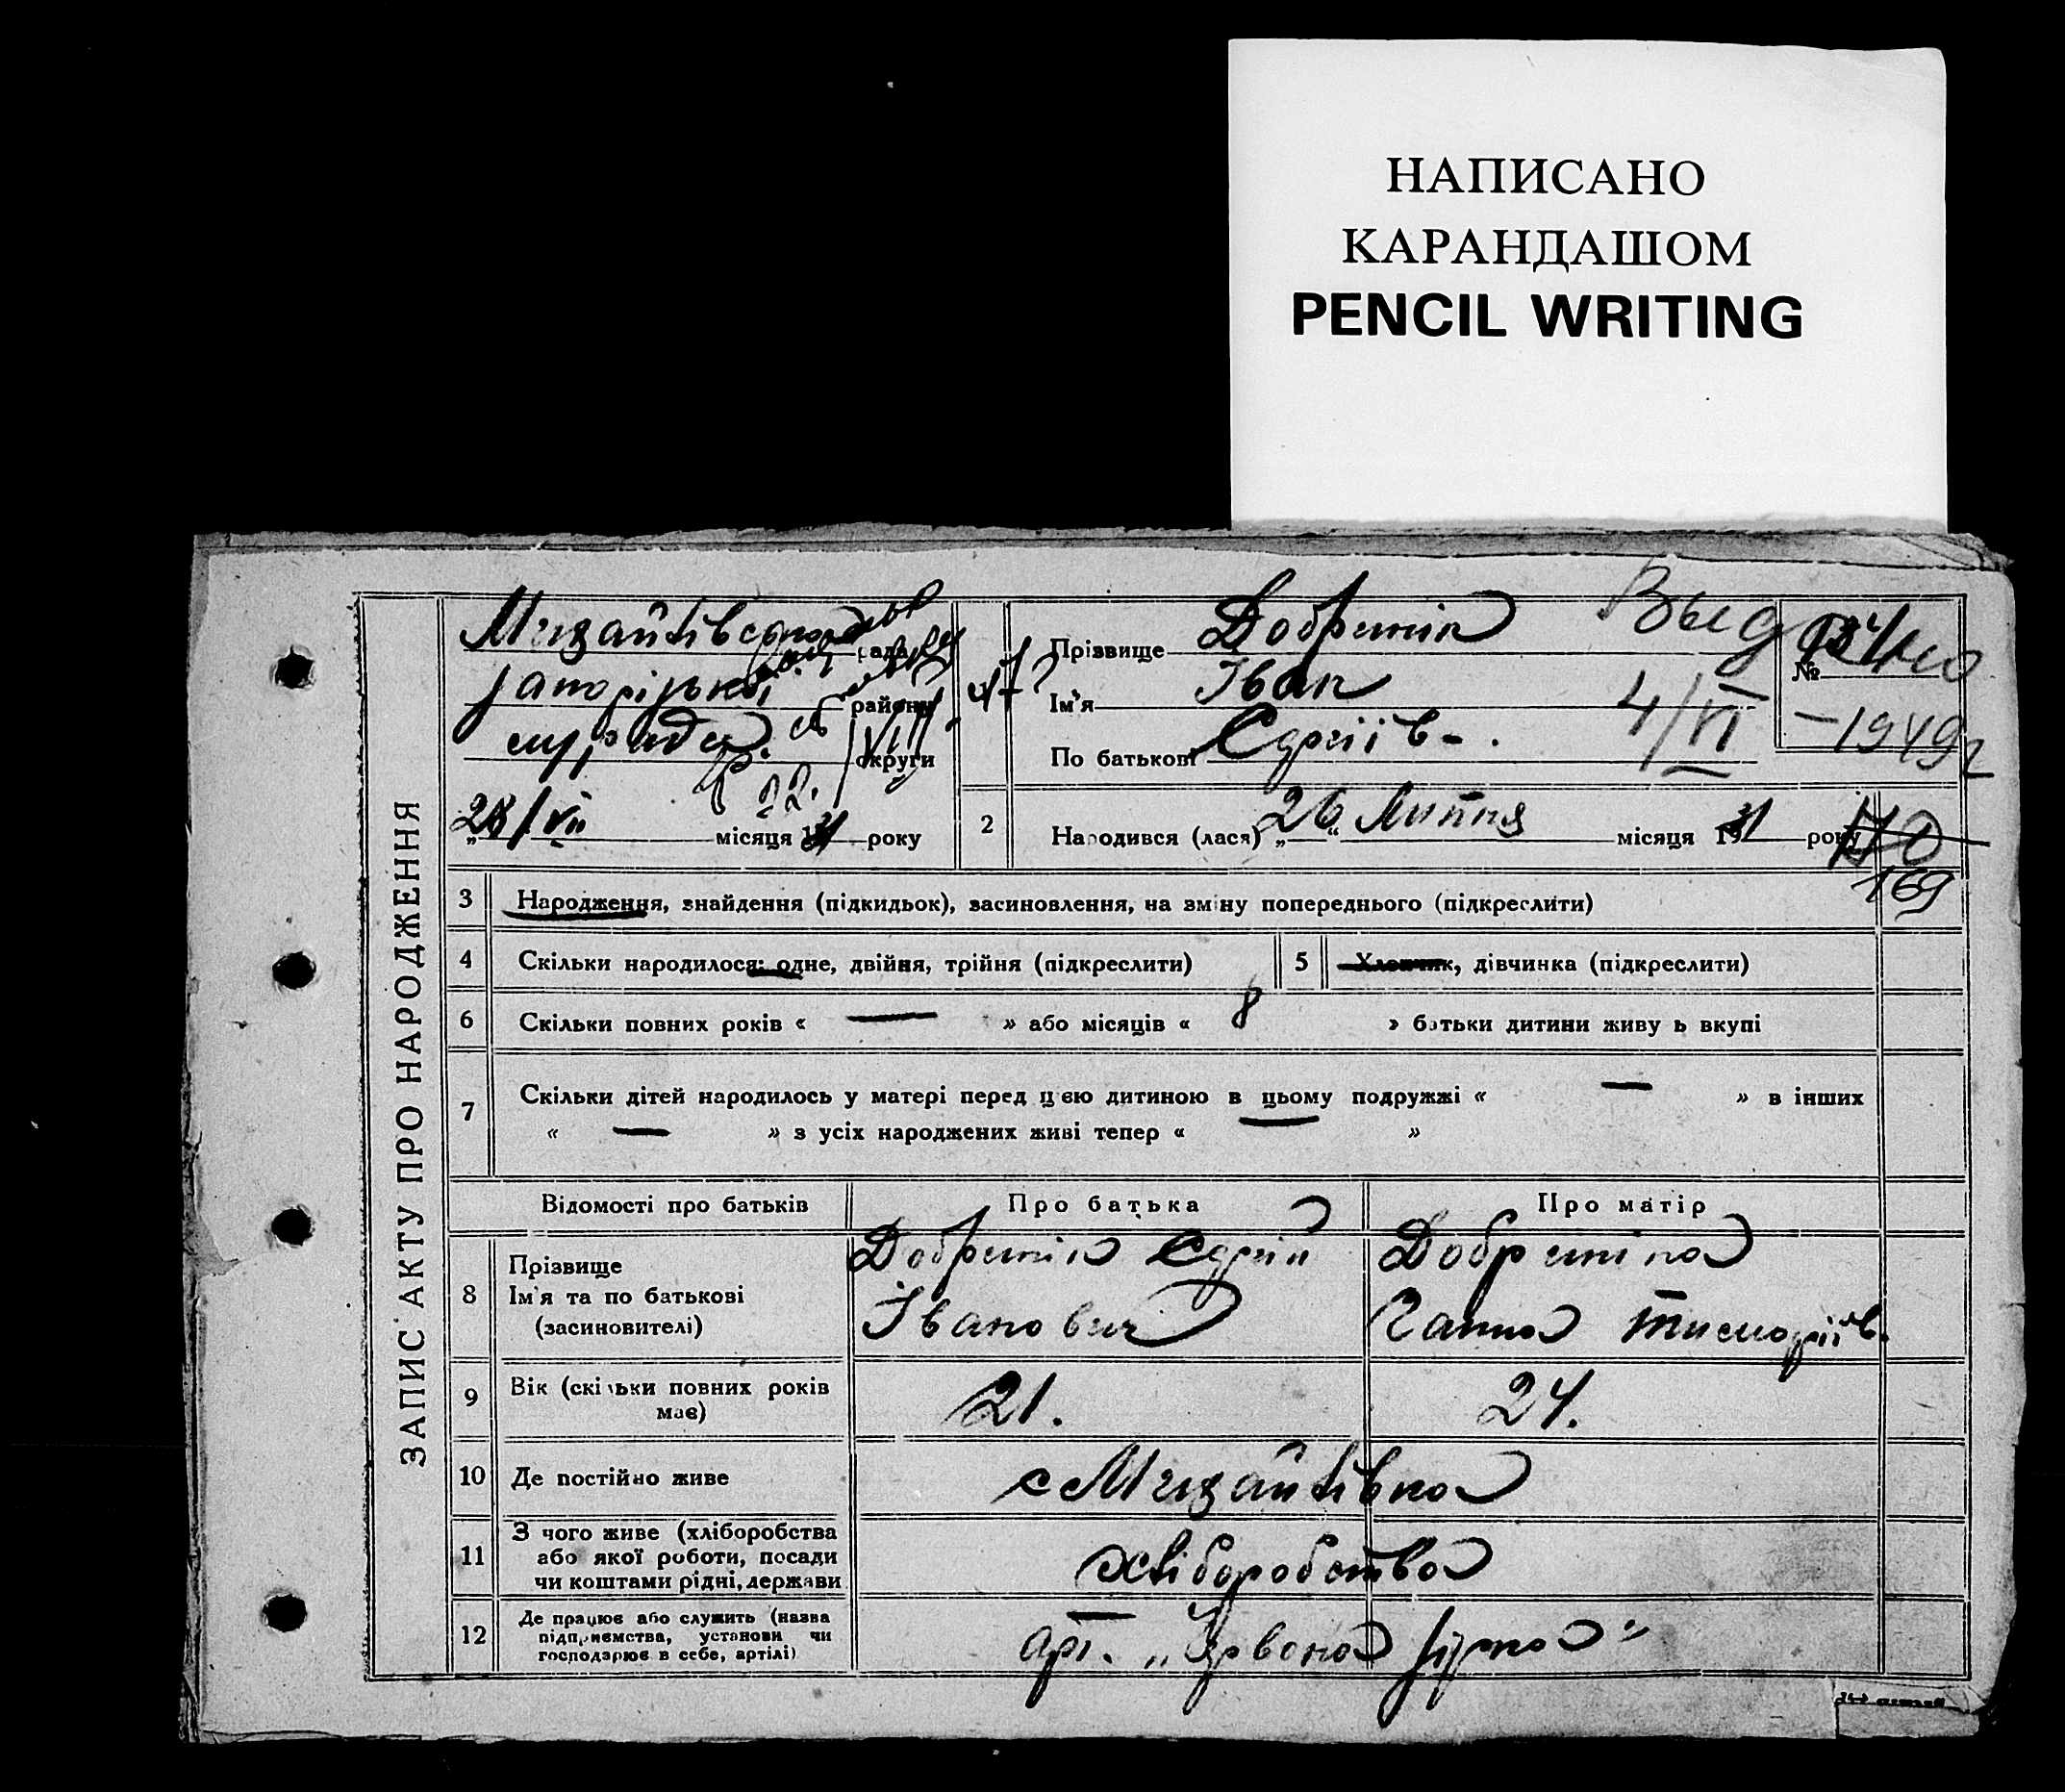 НАПИСАНО
КАРАНДАШОМ
PENCIL WRITING
ЗАПИС АКТУ ПРО НАРОДЖЕННЯ
рада
району
округи
28/VII місяця 1931 року
Прізвище Добренін
Ім'я Іван
По батькові Сергіїв.
№
4/VI
1949
2
Народився (лася) „26“ Липня місяця 1931 року
170
169
3 Народження, знайдення (підкидьок), засиновлення, на зміну попереднього (підкреслити)
4 Скільки народилося: одне, двійня, трійня (підкреслити) 5 Хлопчик, дівчинка (підкреслити)
6 Скільки повних років « — » або місяців « 8 » батьки дитини живуть вкупі
7 Скільки дітей народилось у матері перед цією дитиною в цьому подружжі « — » в інших
« — » з усіх народжених живі тепер « — »
Відомості про батьків Про батька Про матір
8 Прізвище Ім'я та по батькові (засиновителі)
Добренін Сергій Іванович
Добреніна Ганна
9 Вік (скільки повних років має) 21. 24.
10 Де постійно живе
11 З чого живе (хліборобства або якої роботи, посади чи коштами рідні, держави
хліборобство
12 Де працює або служить (назва підприємства, установи чи господарює в себе, артілі)
арт. „Червона Зірка"